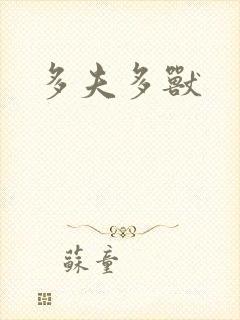 多夫多獸
蘇童